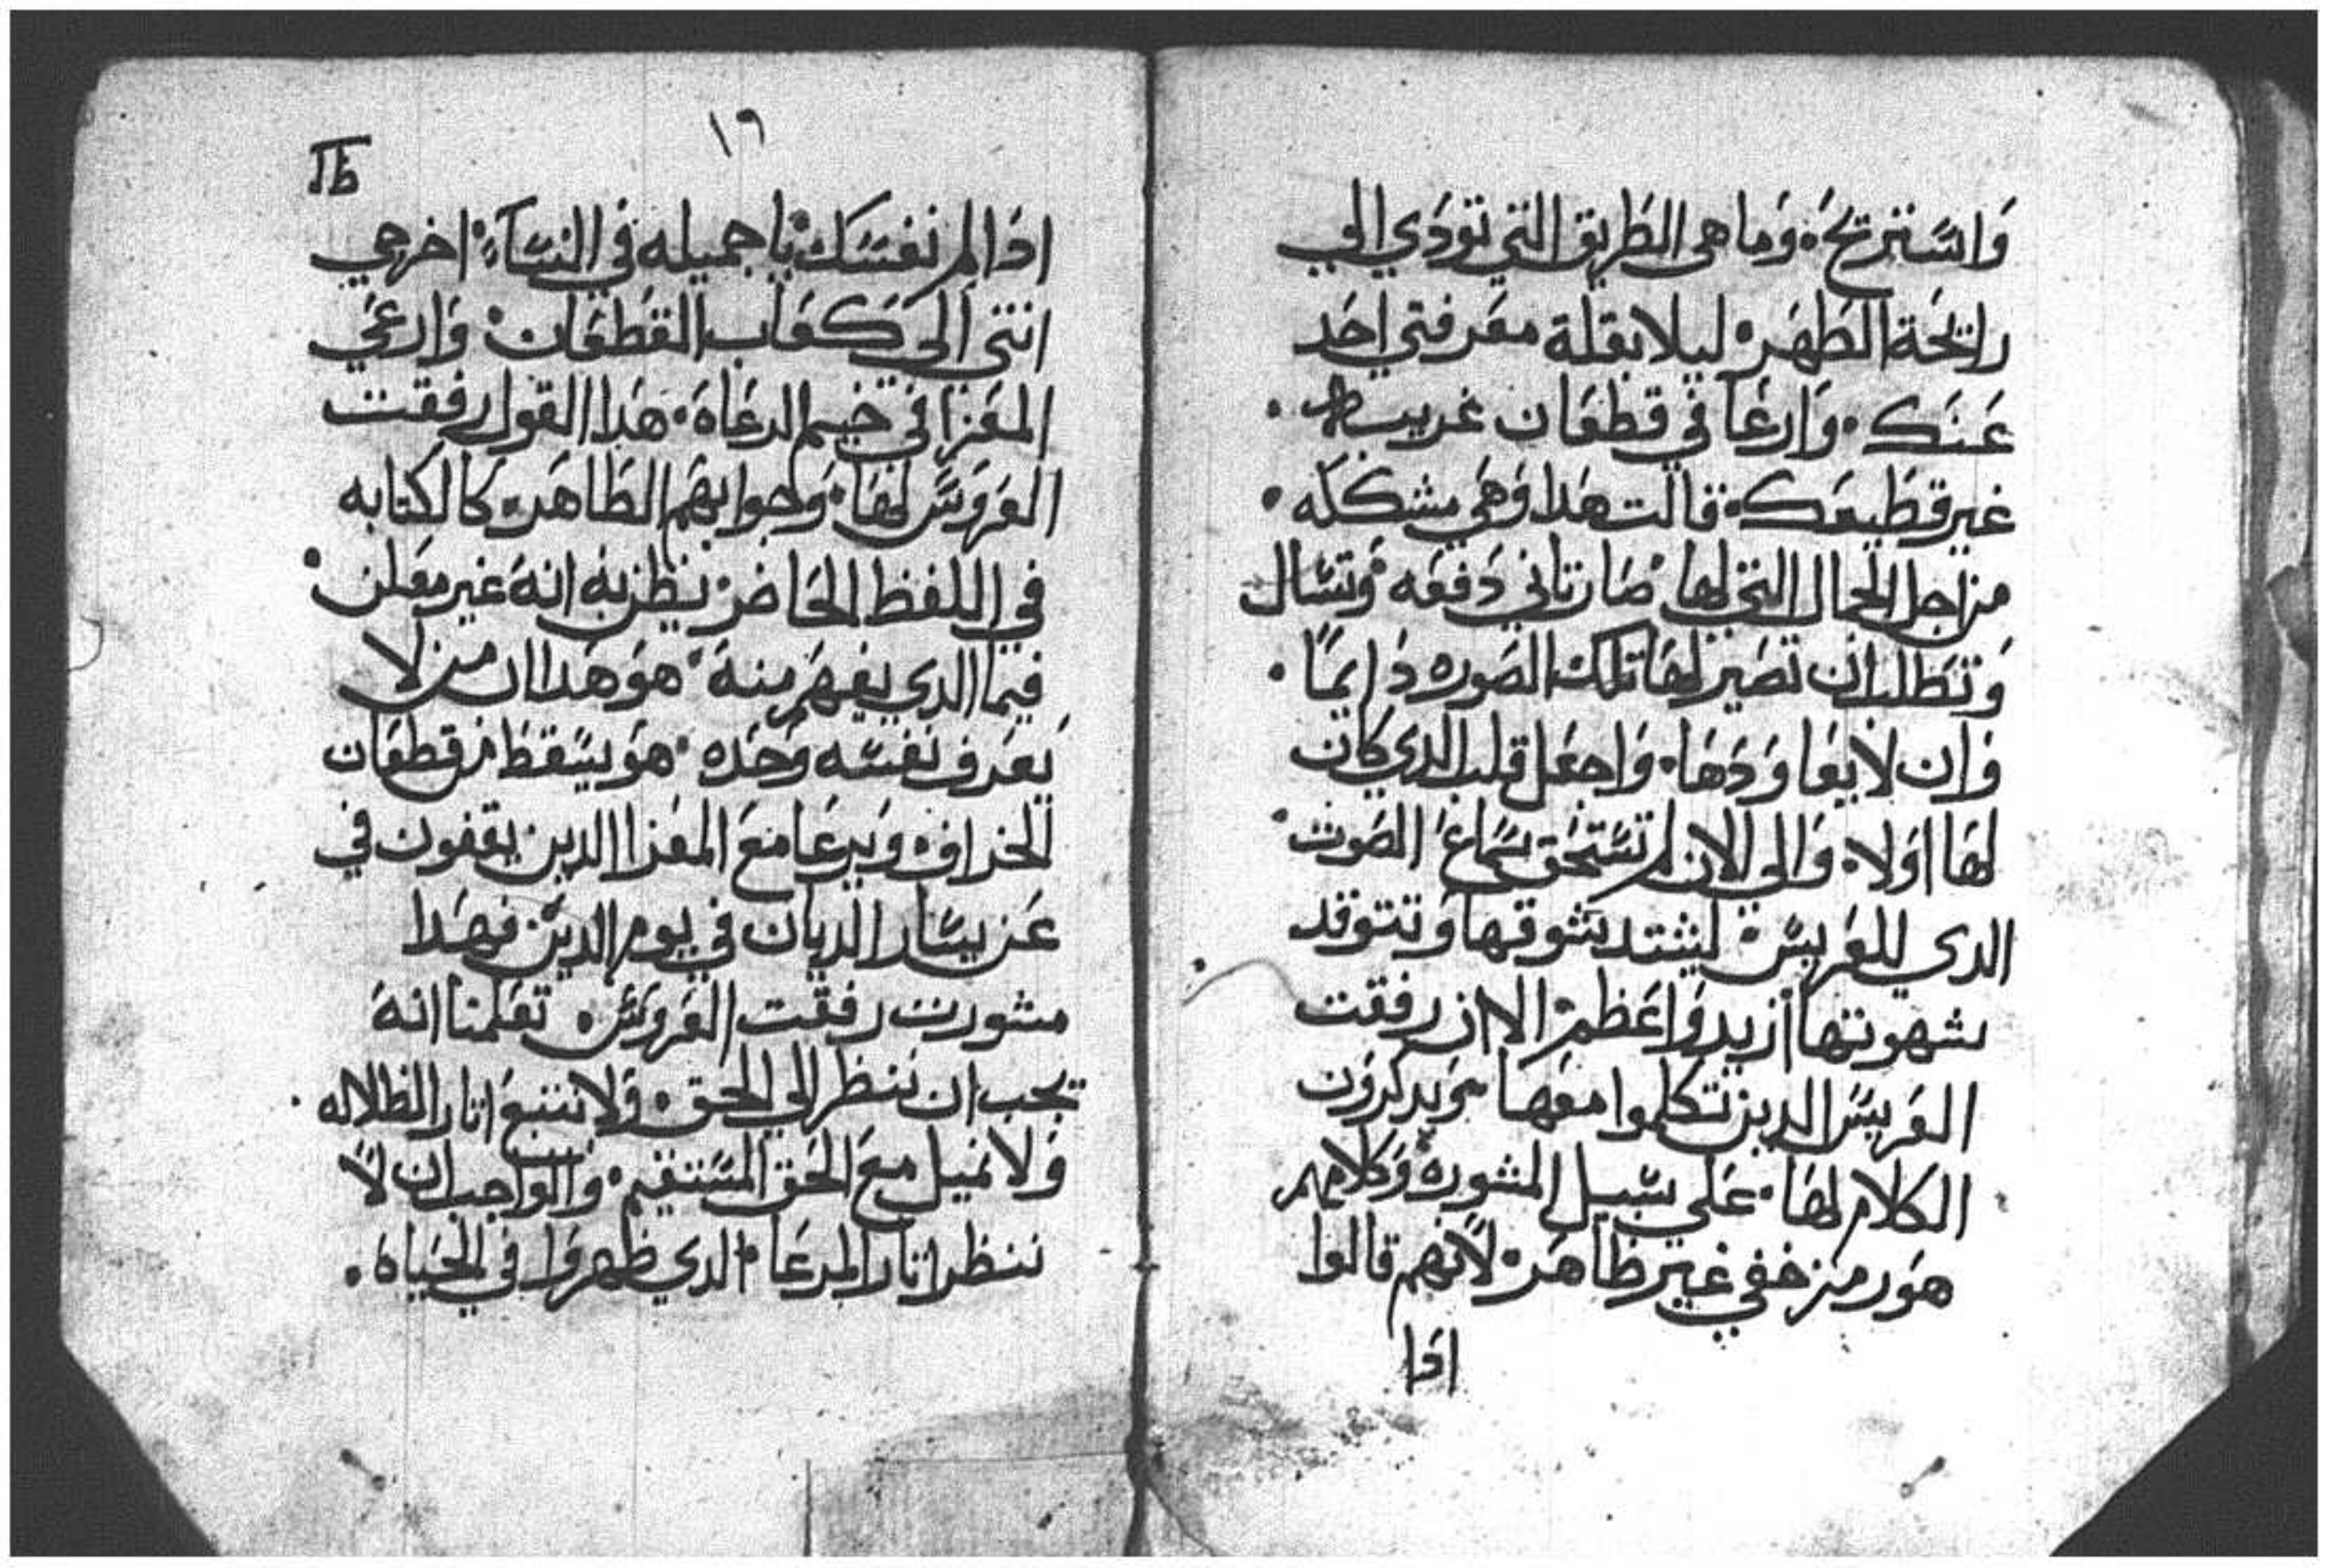 وَاسْتريحَ. وَما هى الطَريق التي تودَي الي
رايحَة الطَهَر. ليلا بقلة معَرفتي احَد
عَنَك. وَارعَا في قطعَان غريبه.
غير قطَيعَك. قالت هَدا وَهَي مشككَه.
من اجل الجمال التي لها. صَار تاني دَفعَه وَتسَال
وَتطَلب ان تصَير لهَا تلك الصَوره دَايمًا.
وَان لا يعَاوَدَهَا. وَاجعَل قلب الدي كان
لهَا اوَلا. وَالي الان لم تسَتحَق سَماعَ الصَوت.
الدي للعَريسَ. ليشتد شوقها وَتتوقد
شهوتها ازيد وَاعَظم. الا ان رفقت
العَريسَ الدين تكلموا معَهَا يَدكروَن
الكلام لهَا. عَلي سَبيل المشورة وَكلامهم
هوَ رمز خفي غير ظَاهَر. لانهم قالوا
ادَا
١٦
ادَا لم نفسَك. يا جميله في النسَآءِ. اخرجي
انتي الى كعَاب القطعَان. وَارعَي
المعَزا في خيم الرعَاة. هَدا القول رفقت
العَروَسَ لهَا. وَجوابهَم الظَاهَر. كالكتابه
في اللفظ الحَاضر. يظن به انهَ غير معَلن.
فيما الدي يفهَم منهَ. هوَ هَدا ان من لا
يَعَرف نفسَه وَحَده. هوَ يسَقظ من قطعَان
الخراف. وَيرعَا معَ المعَزا الدين يقفون في
عَن يسَار الديان في يوم الدينَ. فهَدا
مشورت رفقت العَروَسَ. تعَلمنا انهَ
يجب ان ننظر الي الحَق. وَلا نتبعَ اتار الظلاله.
وَلا نميل معَ الحَق المسَتقيم. وَالواجب ان لاَ
ننظر اتار المرعَا. الدي ظهروَا في الحَياة.